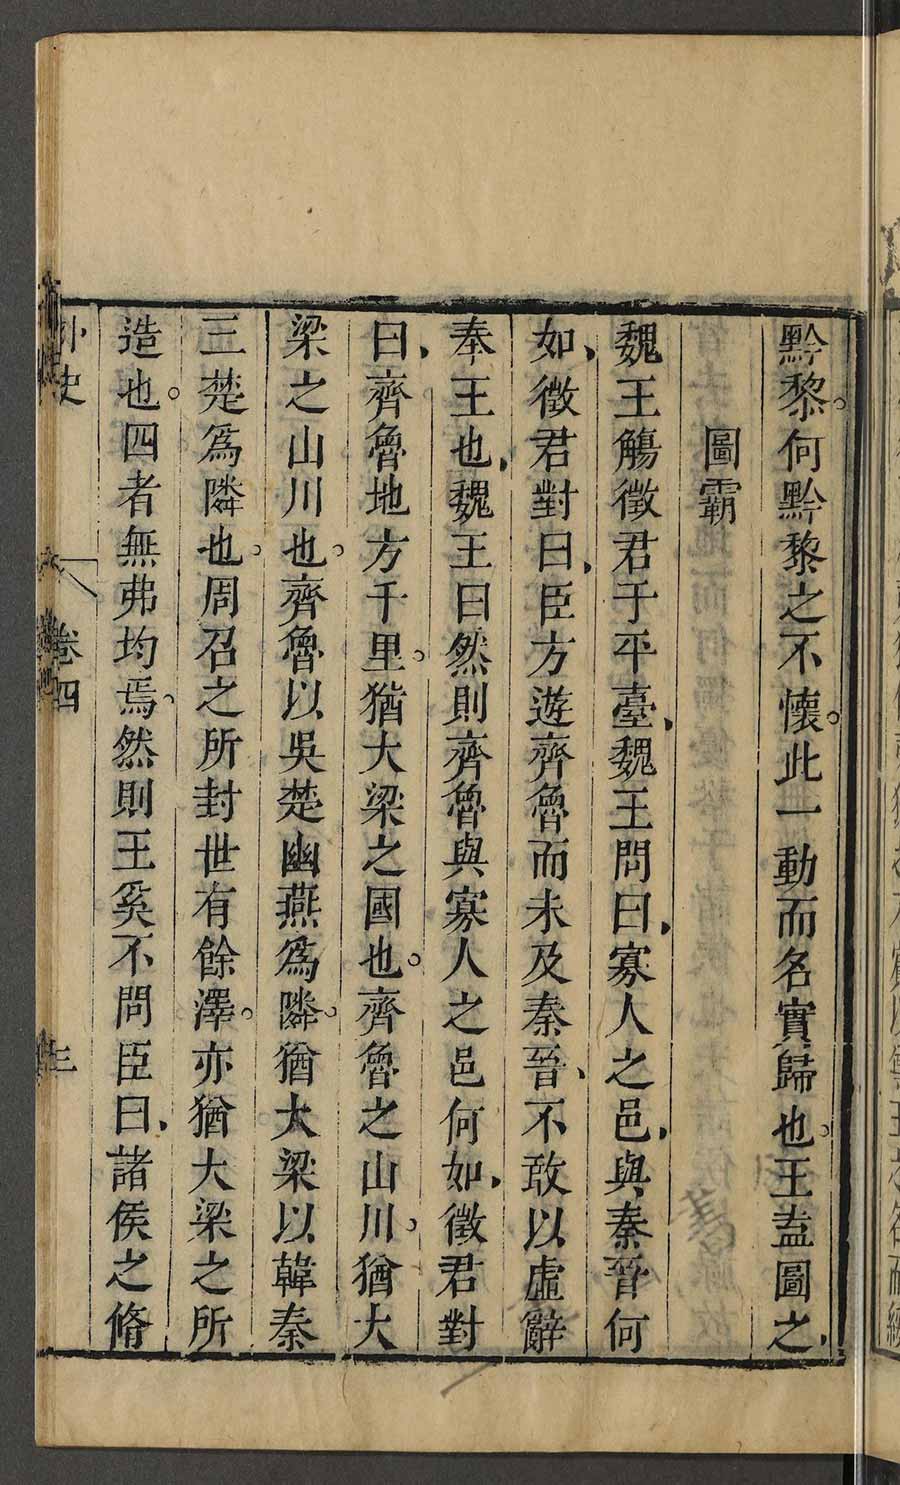 黔黎。何黔黎之不懷。此一動而名實歸也。王盍圖之、
圖霸
魏王觴徵君于平臺、魏王問曰、寡人之邑、與秦晉何
如、徵君對曰、臣方遊齊魯而未及秦晉、不敢以虛辭
奉王也、魏王曰然則齊魯與寡人之邑何如、徵君對
曰、齊魯地方千里。猶大梁之國也。齊魯之山川。猶大
梁之山川也。齊魯以吳楚幽燕爲隣。猶大梁以韓秦
三楚爲隣也。周召之所封世有餘澤。亦猶大梁之所
造也。四者無弗均焉。然則王奚不問臣曰、諸侯之脩
外史
卷四
三